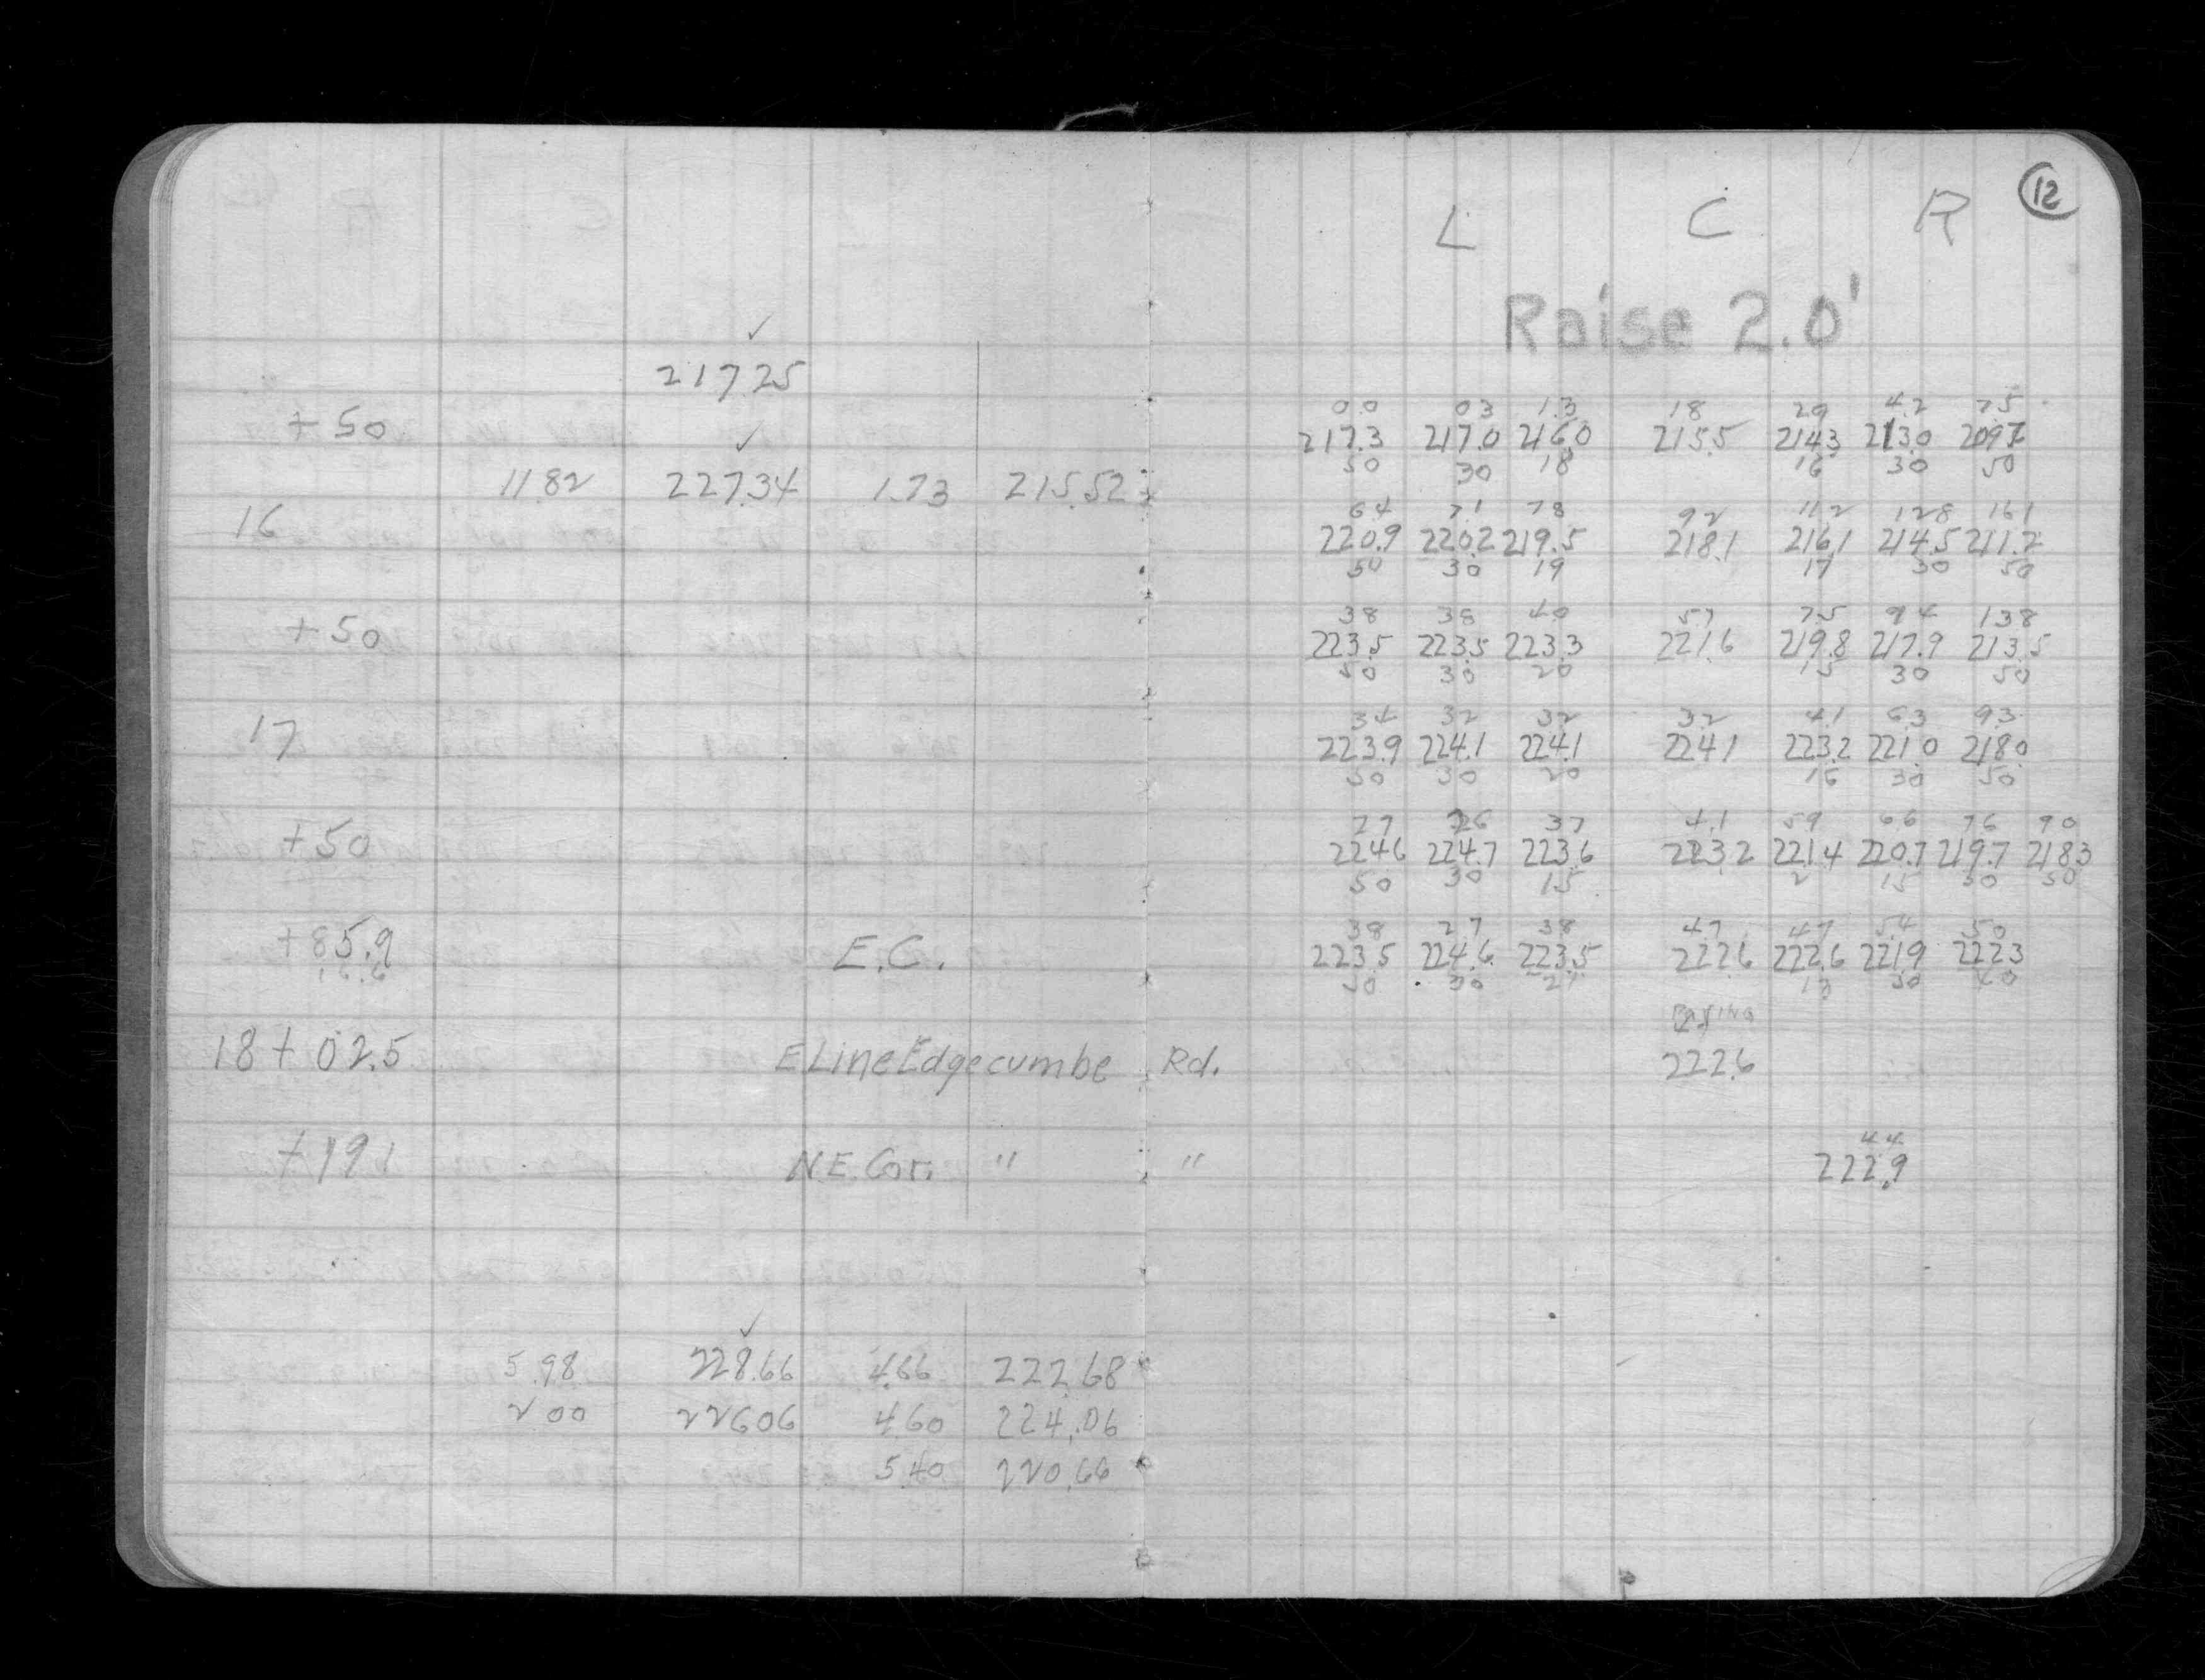 12
L C R
Raise 2.0'
✓
217.25
0.0 0.3 1.3 1.8 2.9 4.2 7.5
+50 217.3 217.0 216.0 215.5 214.3 213.0 209.7
✓
50 30 18 16 30 50
11.82 227.34 1.73 215.52
6.4 7.1 7.8 9.2 11.2 12.8 16.1
16 220.9 220.2 219.5 218.1 216.1 214.5 211.2
50 30 19 17 30 50
3.8 3.8 4.0 5.7 7.5 9.4 13.8
+50 223.5 223.5 223.3 221.6 219.8 217.9 213.5
50 30 20 15 30 50
3.4 3.2 3.2 3.2 4.1 6.3 9.3
17 223.9 224.1 224.1 224.1 223.2 221.0 218.0
50 30 20 15 30 50
2.7 2.6 3.7 4.1 5.9 6.6 7.6 9.0
+50 224.6 224.7 223.6 223.2 221.4 220.7 219.7 218.3
50 30 15 2 15 30 50
3.8 2.7 3.8 4.7 4.7 5.4 5.0
+85.9 E.C. 223.5 224.6 223.5 222.6 222.6 221.9 222.3
16.6 50 30 21 13 30 40
18+02.5 E Line Edgecumbe Rd. 222.6
4.4
+19.1 N.E. Cor. " " 222.9
✓
5.98 228.66 4.66 222.68
2.00 226.06 4.60 224.06
5.40 220.66